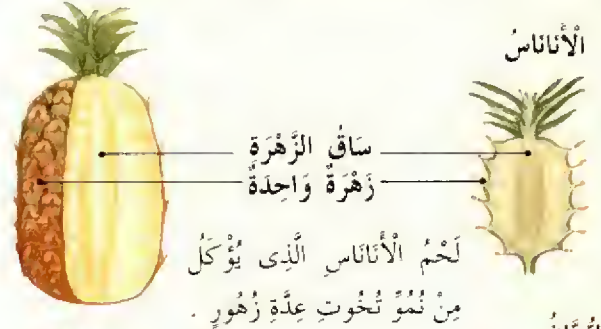 الْأَنَانَاسُ
سَاقُ الزَّهْرَةِ
زَهْرَةٌ وَاحِدَةٌ
لَحْمُ الْأَنَانَاسِ الَّذِى يُؤْكَلُ
مِنْ نُمُوِّ تُخُوتِ عِدَّةِ زُهُورٍ .